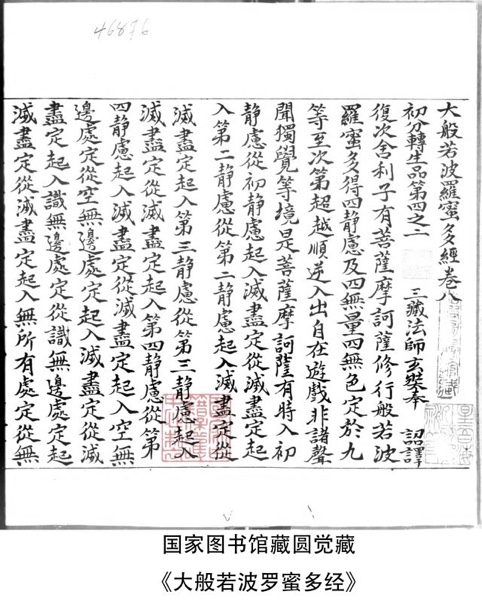 46876
大般若波羅蜜多經卷八
初分轉生品第四之二 三藏法師玄奘奉 詔譯
復次舍利子有菩薩摩訶薩修行般若波
羅蜜多得四静慮及四無量四無色定於九
等至次第超越順逆入出自在遊戲非諸聲
聞獨覺等境是菩薩摩訶薩有時入初
静慮從初静慮起入滅盡定從滅盡定起
入第二静慮從第二静慮起入滅盡定從
滅盡定起入第三静慮從第三静慮起入
滅盡定從滅盡定起入第四静慮從第
四静慮起入滅盡定從滅盡定起入空無
邊處定從空無邊處定起入滅盡定從滅
盡定起入識無邊處定從識無邊處定起
滅盡定從滅盡定起入無所有處定從無
国家图书馆藏圆觉藏
《大般若波罗蜜多经》